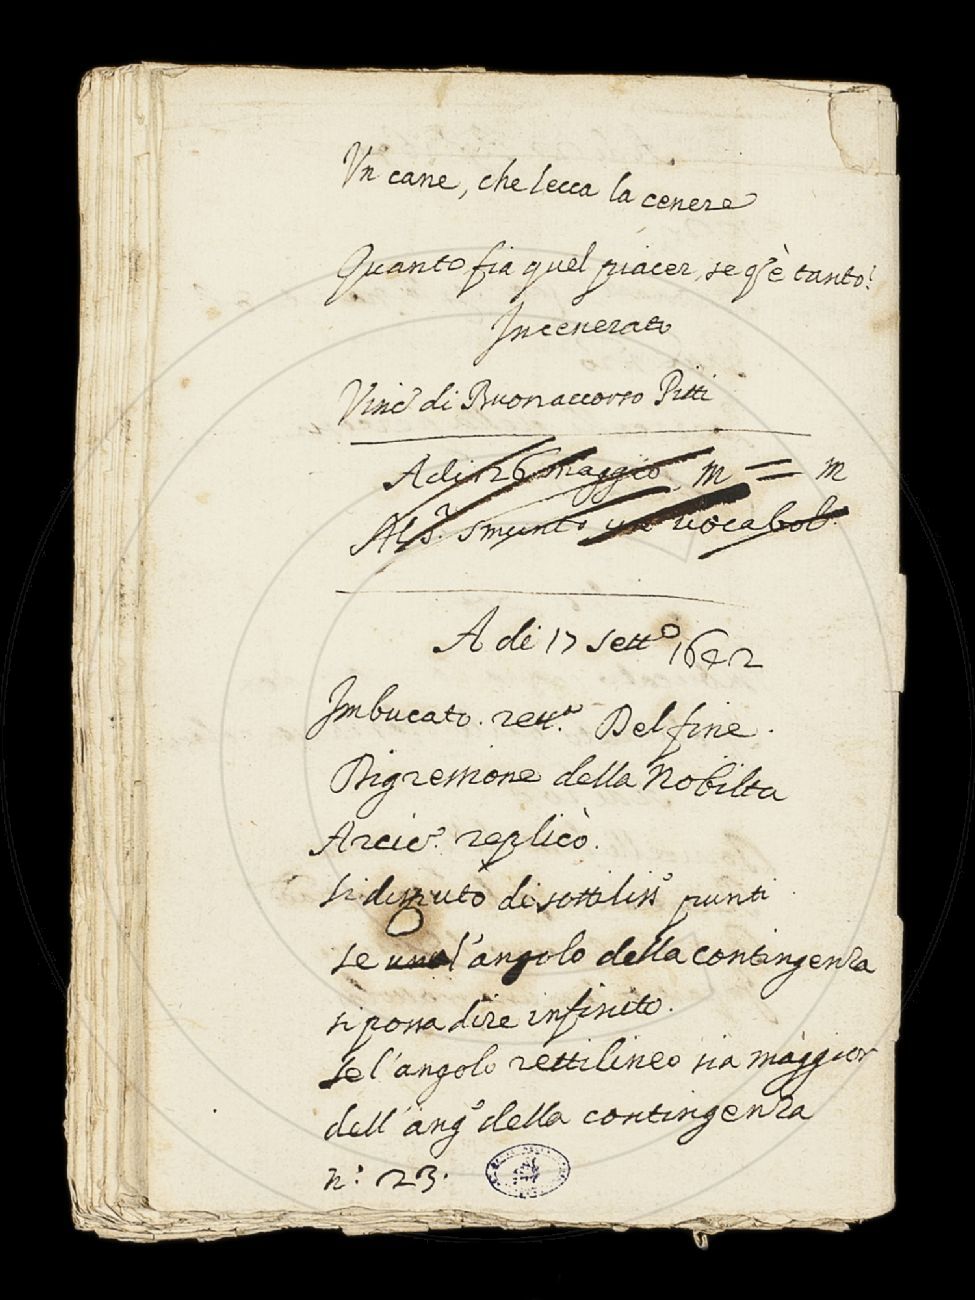 Un cane, che lecca la cenere
Quanto fia quel piacer, se q̃sto è tanto!
Incenerato
Vinc.º di Buonaccorso Pitti
A di 26 maggio m = m
Al S.r smunto un vocabol.
A di 17 sett.º 1642
Imbucato. rett.ª Del fine.
Digressione della Nobilta
Arcic.º replicò.
si disputò di sottiliss.i punti
se l'angolo della contingenza
si possa dire infinito.
se l'angolo rettilineo sia maggior
dell'ang.º della contingenza
n.º 23.